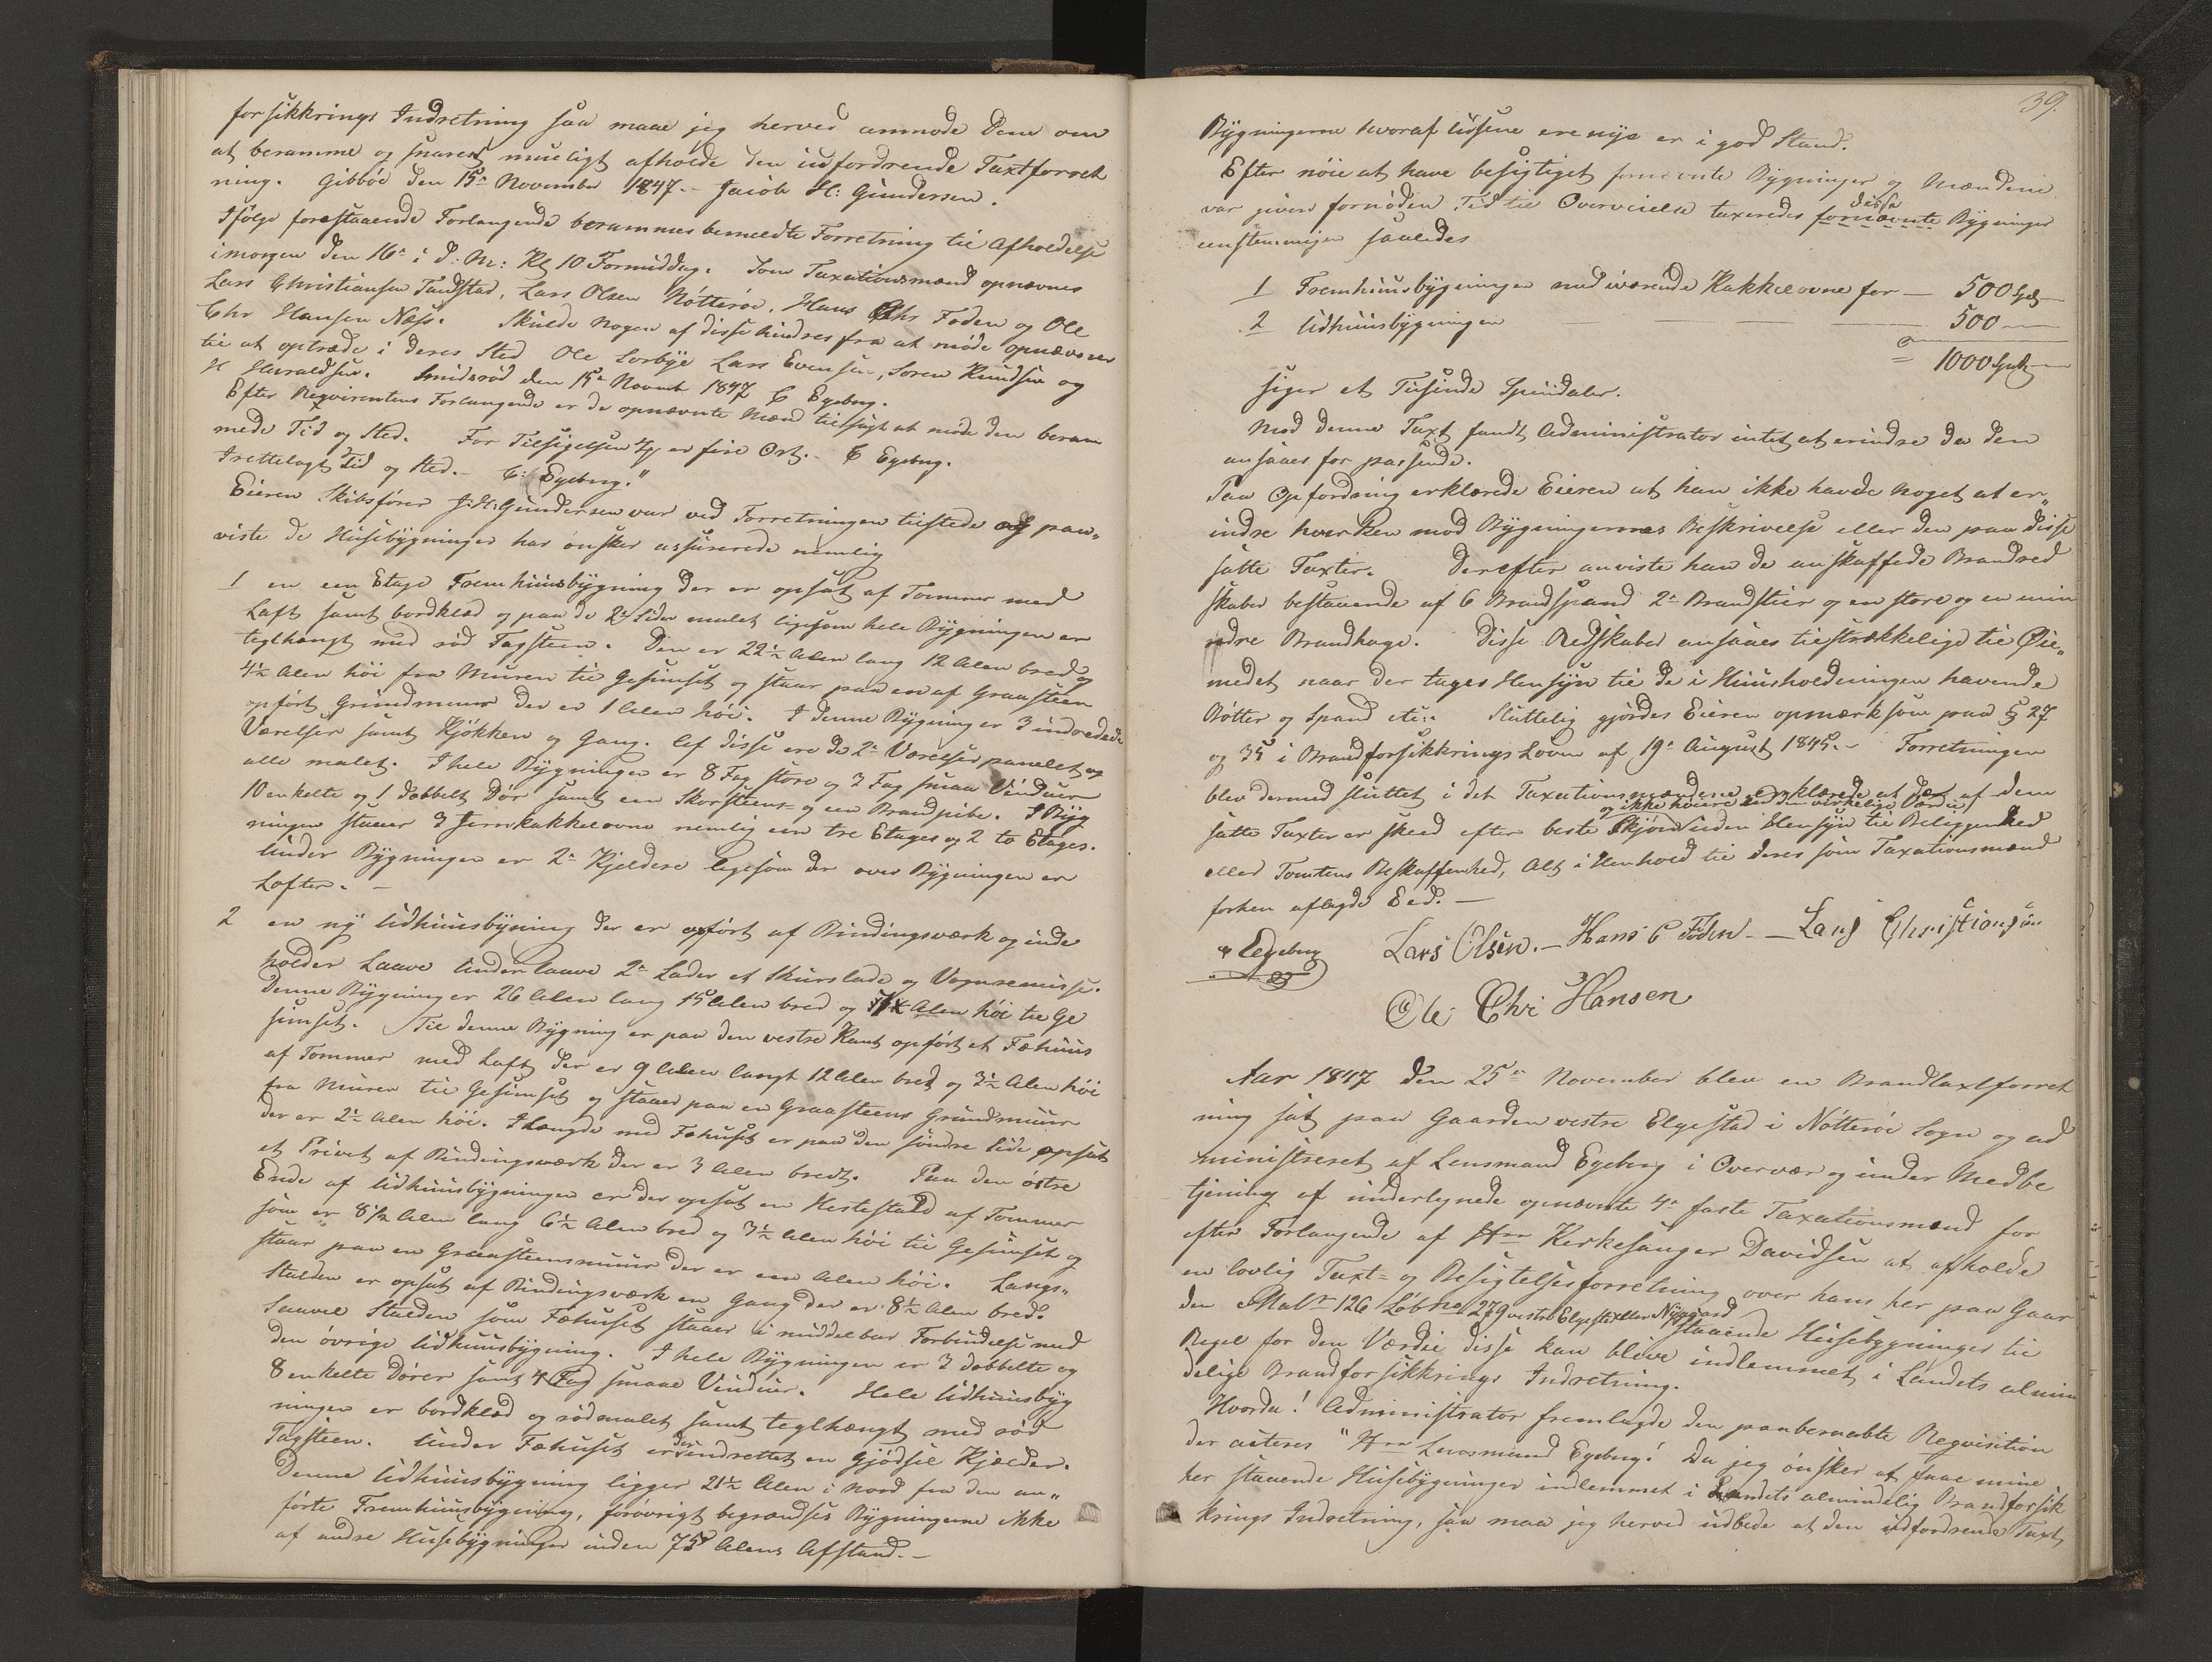 forsikkrings Indretning saa maae jeg herved anmode Dem om
at beramme og snarest mueligt afholde den udfordrende Taxtforret
ning. Gibbøe den 15de November 1847. Jacob H: Gundersen.
Ifølge forestaaende Forlangende berammes bemeldte Forretning til Afholdelse
imorgen den 16de i d: M: Kl 10 Formiddag. Som Taxationsmænd opnævnes
Lars Christiansen Tandstad, Lars Olsen Nøtterøe, Hans Chr Føden og Ole
Chr Hansen Næss. Skulde nogen af disse hindres fra at møde opnævnes
til at optræde i deres Sted Ole Sorbye Lars Evensen, Søren Knudsen og
H Haraldsen. Smidsrød den 15de Novemb 1847 C Egeberg.
Efter Reqvirentens Forlangende er de opnævnte Mænd tilsagt at møde den beram
mede Tid og Sted. For Tilsigelsen 4/ er fire Ort. C Egeberg.
Irettelagt Tid og Sted. C: Egeberg."
Eieren Skibsfører J. H. Gundersen var ved Forretningen tilstede og paa„
viste de Huusebygninger han ønsker assurerede nemlig
1 en een Etage Fremhuusbygning der er opsat af Tømmer med
Laft samt bordklæd og paa de 2de Sider malet ligesom hele Bygningen er
teglhængt med rød Tagsteen. Den er 22½ Alen lang 12 Alen bred og
4½ Alen høi fra Muren til Gesimset og staar paa en af Graasteen
opført Grundmuur der er 1 Alen høi. I denne Bygning er 3 indredede
Værelser samt Kjøkken og Gang. Af disse ere de 2de Værelser panelet og
alle malet. I hele Bygningen er 8 Fag store og 2 Fag smaa Vinduer
10 enkelte og 1 dobbelt Dør samt een Skorsteens= og een Brandpibe. I Byg
ningen staaer 3 Jernkakkelovne nemlig een tre Etages og 2 to Etages.
Under Bygningen er 2de Kjeldere ligesom der over Bygningen er
Lofter. –
2 en ny Udhuusbyning der er opført af Bindingsværk og inde
holder Laave Underlaave 2de Lader et Skurslade og Vognremisse.
Denne Bygning er 26 Alen lang 15 Alen bred og Alen høi til Ge
simset. Til denne Bygning er paa den vestre Kant opført et Fæhuus
af Tømmer med Laft der er 9 Alen langt 12 Alen bred og 3½ Alen høi
fra Muren til Gesimset og staaer paa en Graasteens Grundmuur
der er 2½ Alen høi. I Længde med Fæhuset er paa den søndre Side opsat
et Privet af Bindingsværk der er 3 Alen bredt. Paa den østre
Ende af Udhuusbygningen er der opsat en Hestestald af Tømmer
som er 8½ Alen lang 6½ Alen bred og 3½ Alen høi til Gesimset og
staar paa en Graasteensmuur der er een Alen høi. Langs„
Stalden er opsat af Bindingsværk en Gang der er 8½ Alen bred.
Saavel Stalden som Fæhuset staaer u middelbar Forbindelse med
den øvrige Udhuusbygning. I hele Bygningen er 3 dobbelte og
8 enkelte Dører samt 4 Fag smaae Vinduer. Hele Udhuusbyg
ningen er bordklæd og rødmalet samt teglhængt med rød
Tagsteen. Under Fæhuset er der indrettet en Gjødsel Kjælder.
Denne Udhuusbygning ligger 21½ Alen i nord fra den an„
førte Fremhuusbygning, forøvrigt begrændses Bygningerne ikke
af andre Husebygninger inden 75 Alens Afstand. –
39.
Bygningerne hvoraf Udhusene ere nye er i god Stand.
Efter nøie at have besigtiget fornevnte Bygninger og Mændene
var given fornøden Tid til Overveielse taxeredes disse fornævnte Bygninger
eenstemmigen saaledes
1 Fremhuusbygningen med iværende Kakkelovne for — 500 Spd
2 Udhuusbygningen — — 500 —
= 1000 Spd —
siger et Tusinde Speciedaler.
Mod denne Taxt fandt Administrator intet at erindre da den
ansaaes for passende.
Paa Opfordring erklærede Eieren at han ikke havde noget at er„
indre hverken mod Bygningernes Beskrivelse eller den paa disse
satte Taxter. Derefter anviste han de anskaffede Brandred
skaber bestaaende af 6 Brandspand 2de Brandstier og en store og en min
edre Brandhage. Disse Redskaber ansaaes tilstrækkelige til Øie„
medet naar der tages Hensyn til de i Huusholdningen havende
Bøtter og Spand etc. Sluttelig gjordes Eieren opmærksom paa § 27
og 35 i Brandforsikkrings Loven af 19de August 1845. – Forretningen
blev dermed sluttet i det Taxationsmændene erklærede at den af dem
og ikke høiere end den virkelige Værdie
satte Taxter er skeed efter beste Skjøn uden Hensyn til Beliggenhed
eller Tomtens Beskaffenhed, Alt i Henhold til deres som Taxationsmænd
forhen aflagde Eed. –
C Egeberg Lars Olsen. – Hans C Føden – Lars Christiansen
Ole Chr Hansen
Aar 1847 den 25de November blev en Brandtaxtforret
ning sat paa Gaarden vestre Elgestad i Nøtterøe Sogn og ad
ministreret af Lensmand Egeberg i Overvær og under Medbe
tjening af undertegnede opnævnte 4re faste Taxationsmænd for
efter Forlangende af Hrr Kirkesanger Davidsen at afholde
en lovlig Taxt= og Besigtelsesforretning over hans her paa Gaar
den Matr 126 Løbno 279 vestre Elgestad eller Nygaard staaende Husebygninger til
Regel for den Værdie disse kan blive indlemmet i Landets almin
delige Brandforsikkrings Indretning.
Hvorda! Administrator fremlagde den paaberaabte Reqvisition
der acteres "Hrr Lensmand Egeberg! Da jeg ønsker at faae mine
her staaende Husebygninger indlemmet i Landets almindelig Brandforsik
krings Indretning, saa maa jeg herved udbede at den udfordrende Taxt